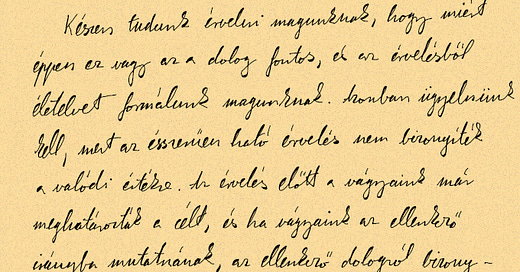 Készen tudunk érvelni magunknak, hogy miért
éppen ez vagy az a dolog fontos, és az érvelésből
életelvet formálunk magunknak. Azonban ügyelnünk
kell, mert az ésszerűen ható érvelés nem bizonyíték
a valódi értékre. Az érvelés előtt a vágyaink már
meghatározták a célt, és ha vágyaink az ellenkező
irányba mutatnának, az ellenkező dologról bizony-